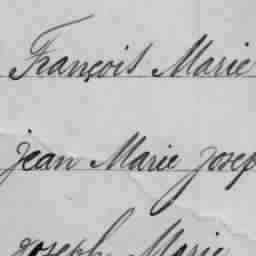 François Marie
jean Marie josep
joseph Marie